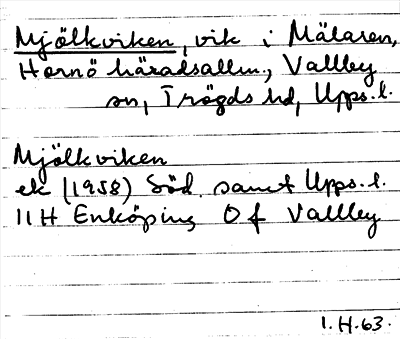 Mjölkviken, vik i Mälaren,
Hornö häradsallm., Vallby
sn, Trögds hd, Upps. l.
Mjölkviken
ek (1958) Söd. samt Upps. l.
11 H Enköping O f Vallby
1. H. 63.